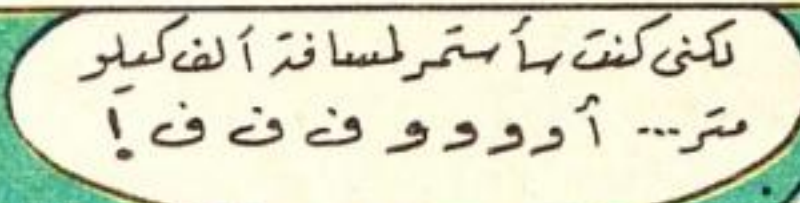 لكنى كنت سأستمر لمسافة ألف كيلو
متر... أوووو ف ف ف !